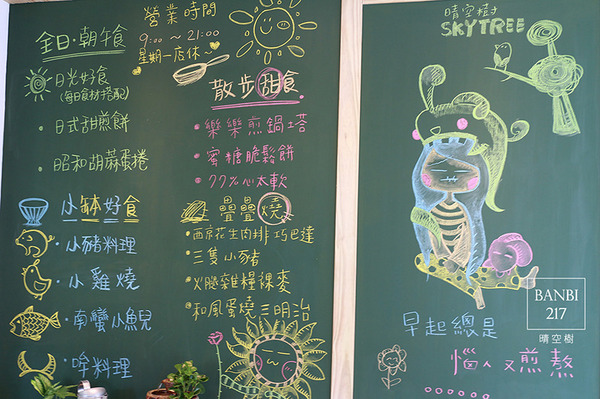 全日·朝午食
日光好食
(每日食材搭配)
·日式甜煎餅
·昭和胡蔴蛋捲
小缽好食
·小豬料理
·小雞燒
·南蠻小魚兒
·哞料理
營業時間
9:00~21:00
星期一店休~
散步甜食
·樂樂煎鍋塔
·蜜糖脆鬆餅
·77%心太軟
疊疊燒
·西京花生肉排巧巴達
·三隻小豬
·火腿雜糧裸麥
·和風蛋燒三明治
晴空樹
SKYTREE
早起總是
惱人又煎熬
BANBI
217
晴空樹